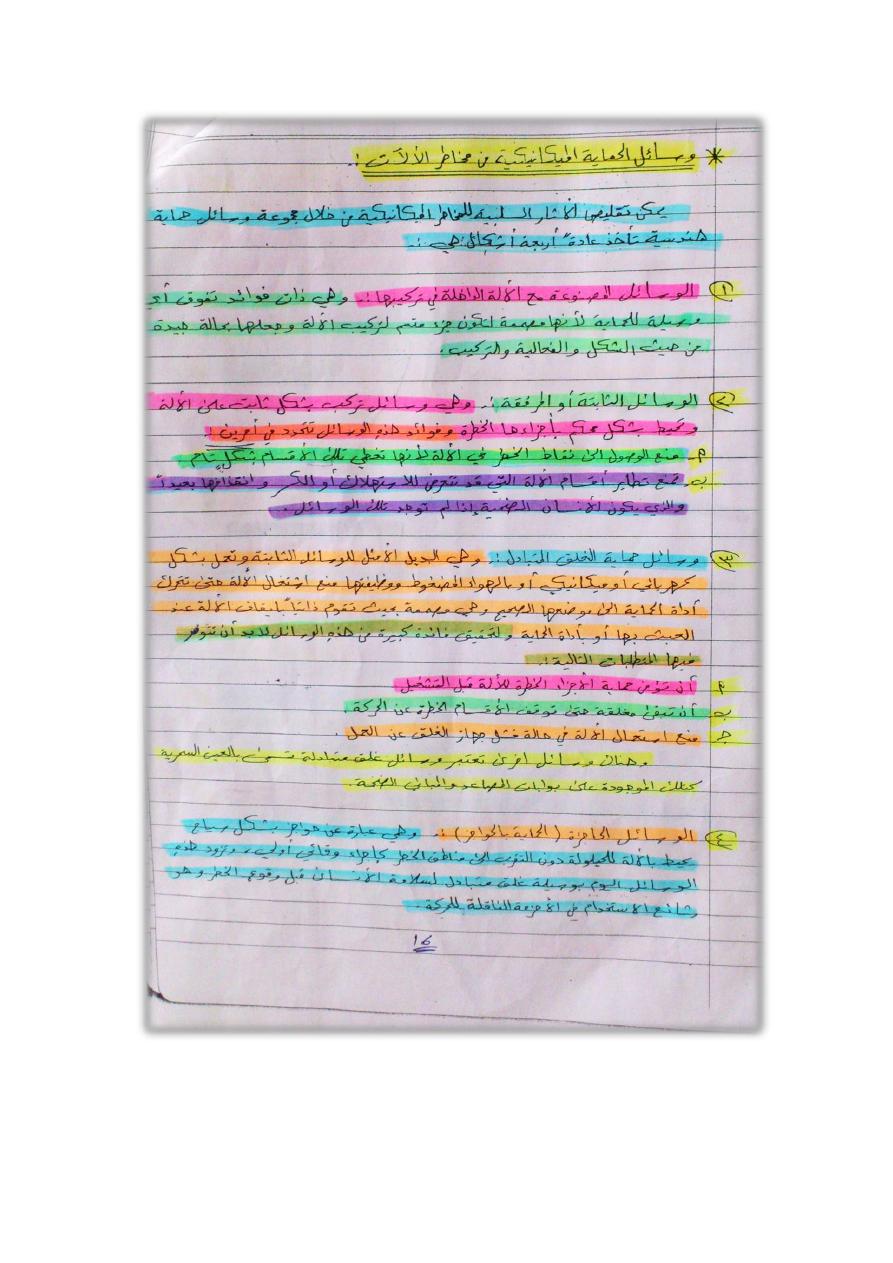 * وسائل الحماية الميكانيكية من مخاطر الآلات :.
يمكن تقليص الآثار السلبية للمخاطر الميكانيكية من خلال مجموعة وسائل حماية
هندسية تأخذ عادةً أربعة أشكال هي :.
١ الوسائل المصنوعة مع الآلة الداخلة في تركيبها :. وهي ذات فوائد تفوق أي
وسيلة للحماية لأنها مصممة لتكون جزء متمم لتركيب الآلة وجعلها بحالة جيدة
من حيث الشكل والفعالية والتركيب.
٢ الوسائل الثابتة أو المرفقة :. وهي وسائل تركب بشكل ثابت على الآلة
وتحيط بشكل محكم بأجزاءها الخطرة وفوائد هذه الوسائل تتحدد في أمرين :
أ- منع الوصول الى نقاط الخطر في الآلة لأنها تغطي تلك الأقسام بشكل تام
ب- تمنع تطاير أقسام الآلة التي قد تتعرض للاستهلاك أو الكسر وانقذافها بعيداً
والذي يكون الأنسان الضحية إذا لم توجد تلك الوسائل.
٣ وسائل حماية الغلق المتبادل :. وهي البديل الأمثل للوسائل الثابتة وتعمل بشكل
كهربائي أو ميكانيكي أو بالهواء المضغوط ووظيفتها منع اشتغال الآلة حتى تتحرك
أداة الحماية الى موضعها الصحيح وهي مصممة بحيث تقوم ذاتياً بإيقاف الآلة عند
العبث بها أو بأداة الحماية ولتحقيق فائدة كبيرة من هذه الوسائل لابد أن تتوفر
فيها المتطلبات التالية :.
أ- أن تؤمن حماية الأجزاء الخطرة للآلة قبل التشغيل
ب- أن تبقى مغلقة حتى توقف الأقسام الخطرة عن الحركة.
ج- منع استعمال الآلة في حالة فشل جهاز الغلق عن العمل.
وهناك وسائل اخرى تعتبر وسائل غلق متبادلة تسمى بالعين السحرية
كتلك الموجودة على بوابات المصاعد والمباني الضخمة.
٤ الوسائل الحاجزة (الحماية بالحواجز) :. وهي عبارة عن حواجز بشكل سياج
يحيط بالآلة للحيلولة دون التقرب الى مناطق الخطر كإجراء وقائي أولي، وتزود هذه
الوسائل اليوم بوسيلة غلق متبادل لسلامة الأنسان قبل وقوع الخطر وهو
شائع الاستخدام في الأحزمة الناقلة للحركة.
16